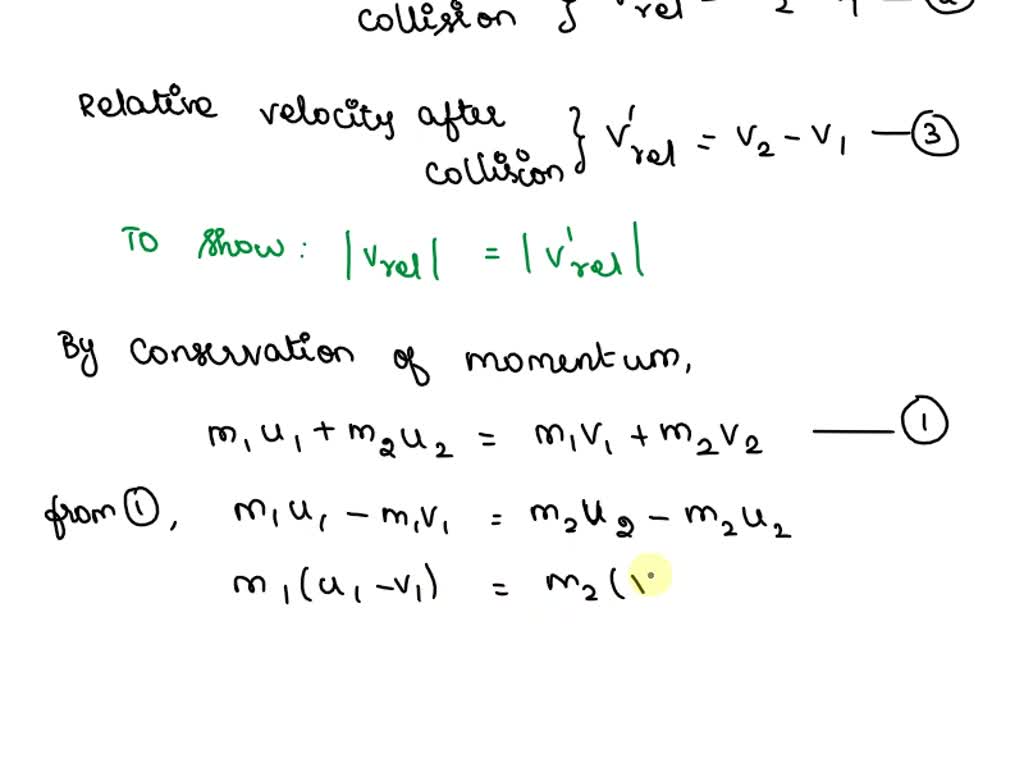 collision } Vrel = 2
Relative velocity after
collision } V'rel = V2 - V1 — ③
To show: |Vrel| = |V'rel|
By conservation of momentum,
m1u1 + m2u2 = m1v1 + m2v2 —— ①
from ①, m1u1 - m1v1 = m2u2 - m2u2
m1(u1 - v1) = m2(